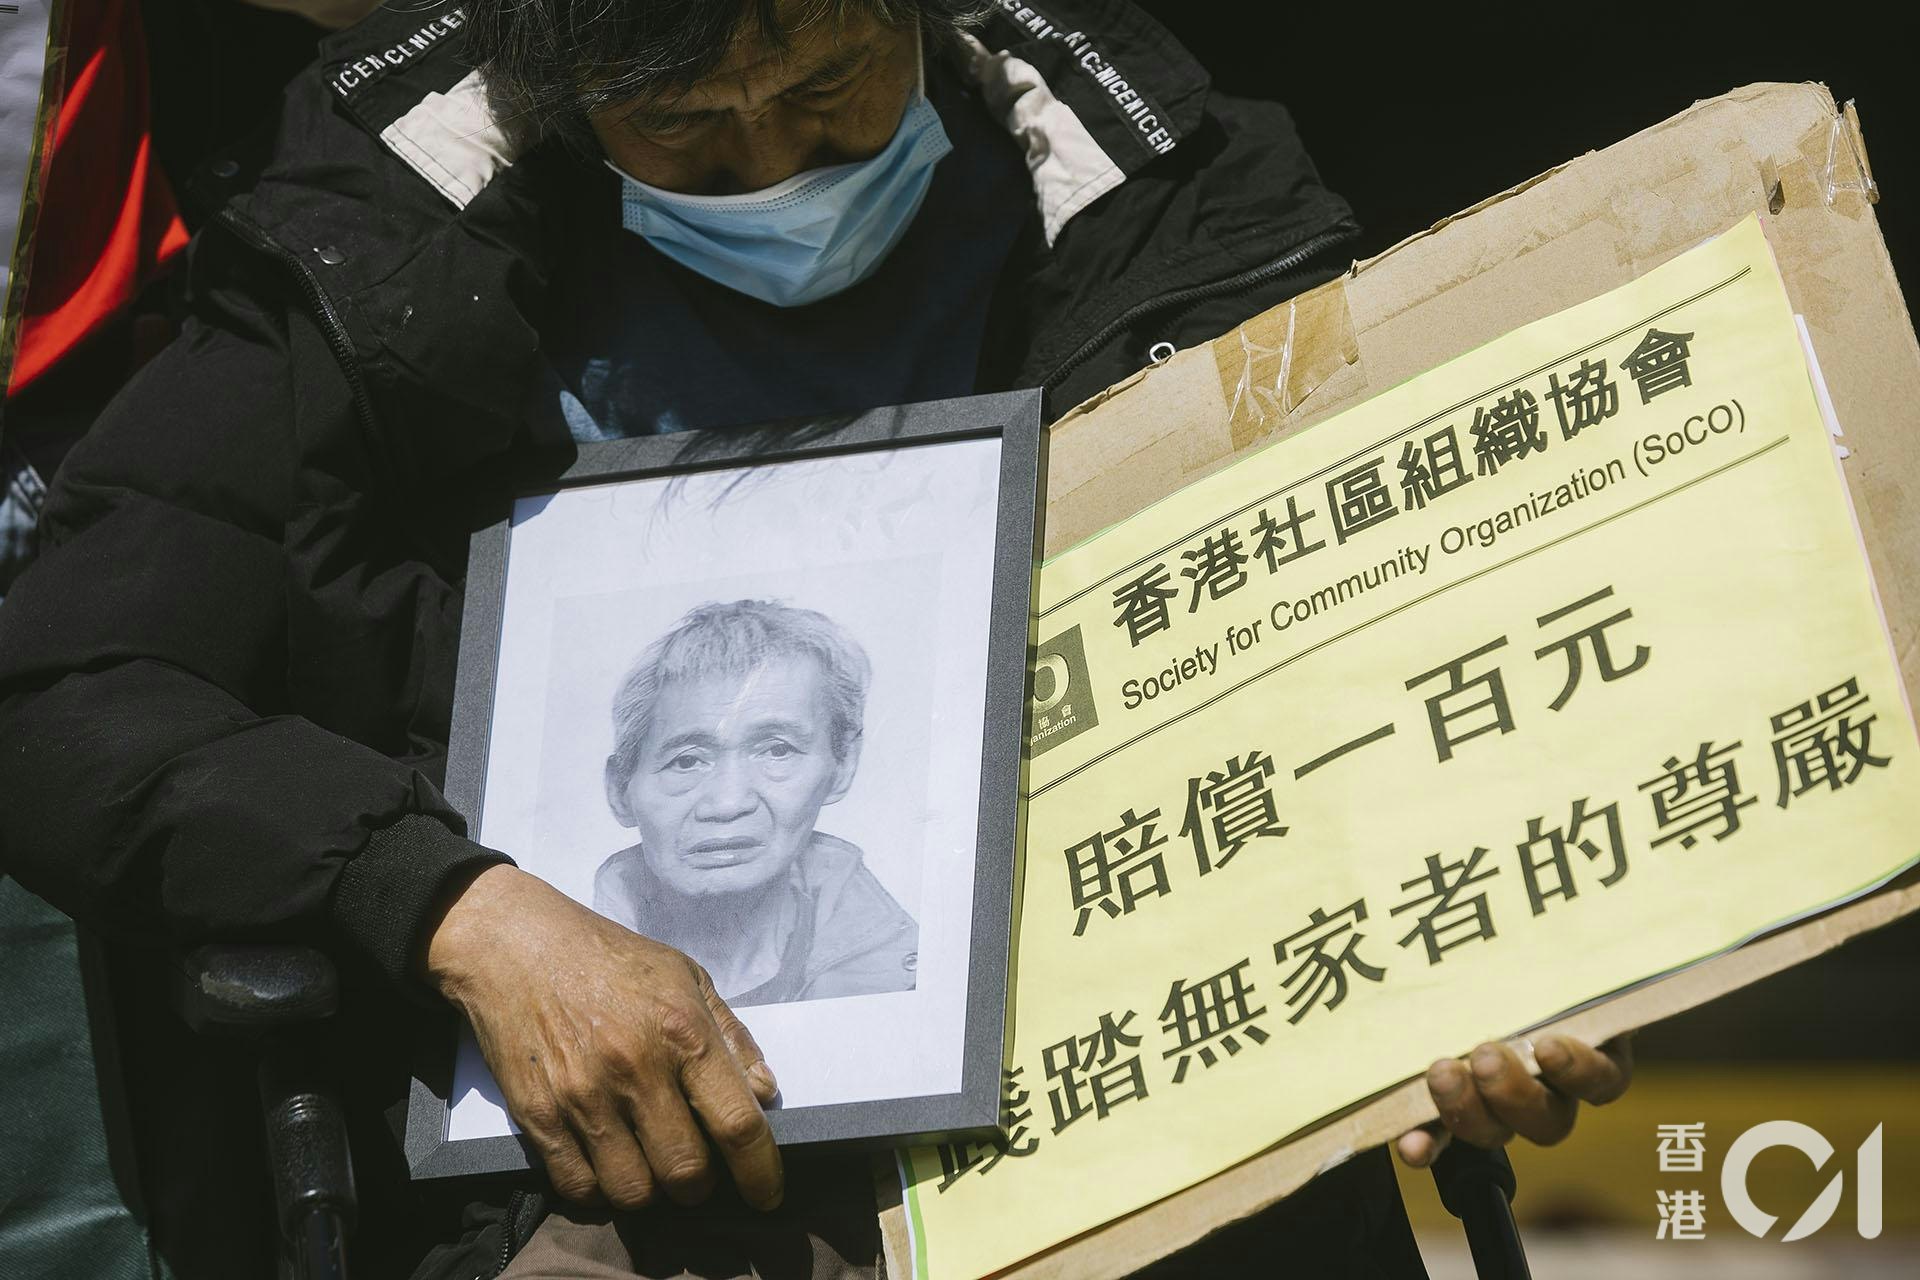 ICENICENICE
NICENICENICEN
香港社區組織協會
Society for Community Organization (SoCO)
協會
anization
賠償一百元
踐踏無家者的尊嚴
香港01